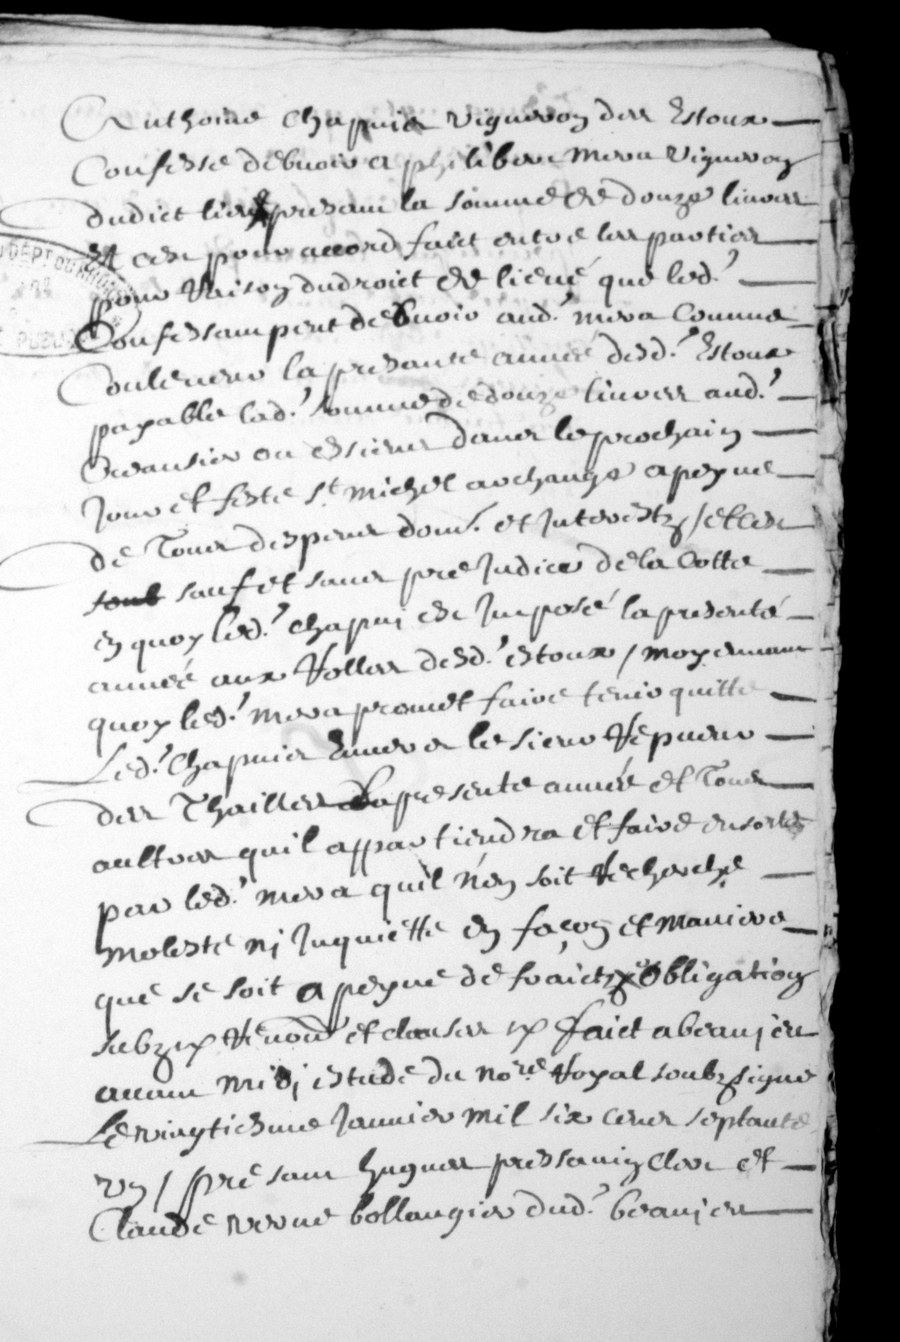 Anthoine Chapuis vigneron des Estoux
Confesse debvoir a philibert Mera vigneron
dudict lieu present la somme de douze livres
Et cest pour accord faict entre les parties
pour raison du droict de lieve que led.
Confessant peut debvoir aud. mera comme
Couleveur la presante année desd. Estoux
payable lad. somme de douze livres aud.
Creansier ou es siens dans le prochain
Jour et feste St. Michel archange a peyne
de Tous despens dom. et Interestz / et cest
sauf et sans prejudice de la Cotte
en quoy led. chapui est Imposé la presente
année aux Rolles desd. estoux / moyennant
quoy led. mera promet faire tenir quitte
Led. Chapuis Envers le sieur Repveur
des Thailles La presente année et Tous
aultres quil appartiendra et faire en sortes
par led. mera quil n'en soit Recherché
Molesté ni Inquietté en façon et Maniere
que se soit a peyne de fraictz Obligation
subzⁿ Renonⁿ et clauses ⁿ faict a beaujeu
avant Midi estude du no.re Royal soubzsigne
Le vingtiesme Janvier Mil six cens septante
un / presant hugues pressavin clerc et
Claude verne bollangier dud. beaujeu
DEPT DU RHONE